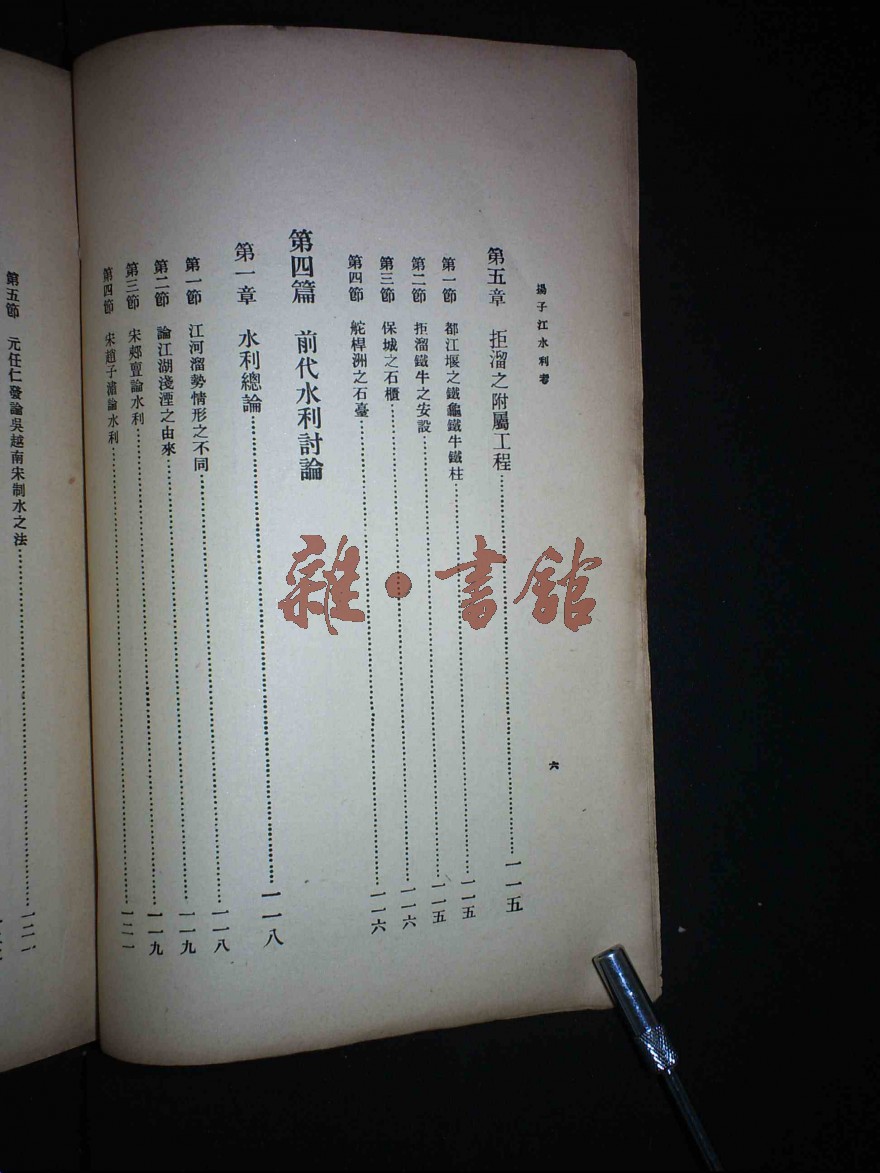 揚子江水利考
六
第五章 拒溜之附屬工程 一一五
第一節 都江堰之鐵龜鐵牛鐵柱 一一五
第二節 拒溜鐵牛之安設 一一五
第三節 保城之石櫃 一一六
第四節 舵桿洲之石臺 一一六
第四篇 前代水利討論
第一章 水利總論 一一八
第一節 江河溜勢情形之不同 一一八
第二節 論江湖淺湮之由來 一一九
第三節 宋郟亶論水利 一一九
第四節 宋趙子潚論水利 一二一
第五節 元任仁發論吳越南宋制水之法 一二一
雜·書館